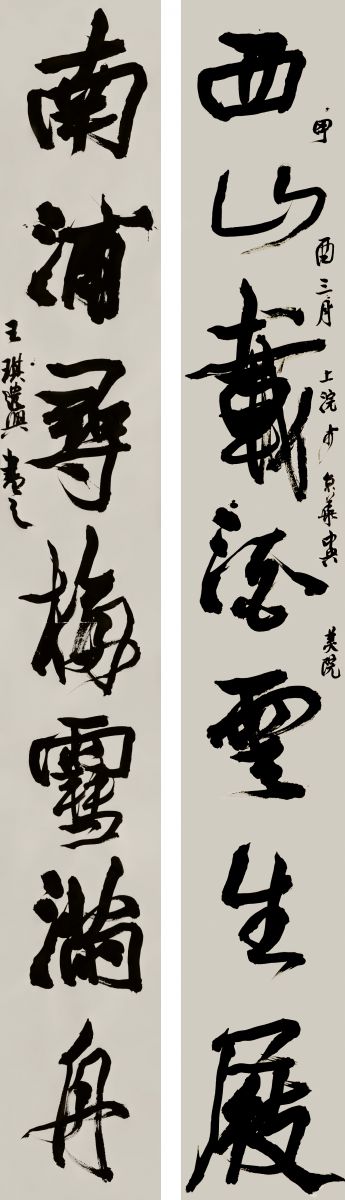 西山載酒雲生屐
甲酉三月上浣於京華國美院
南浦尋梅雪滿舟
王琪遺興書之